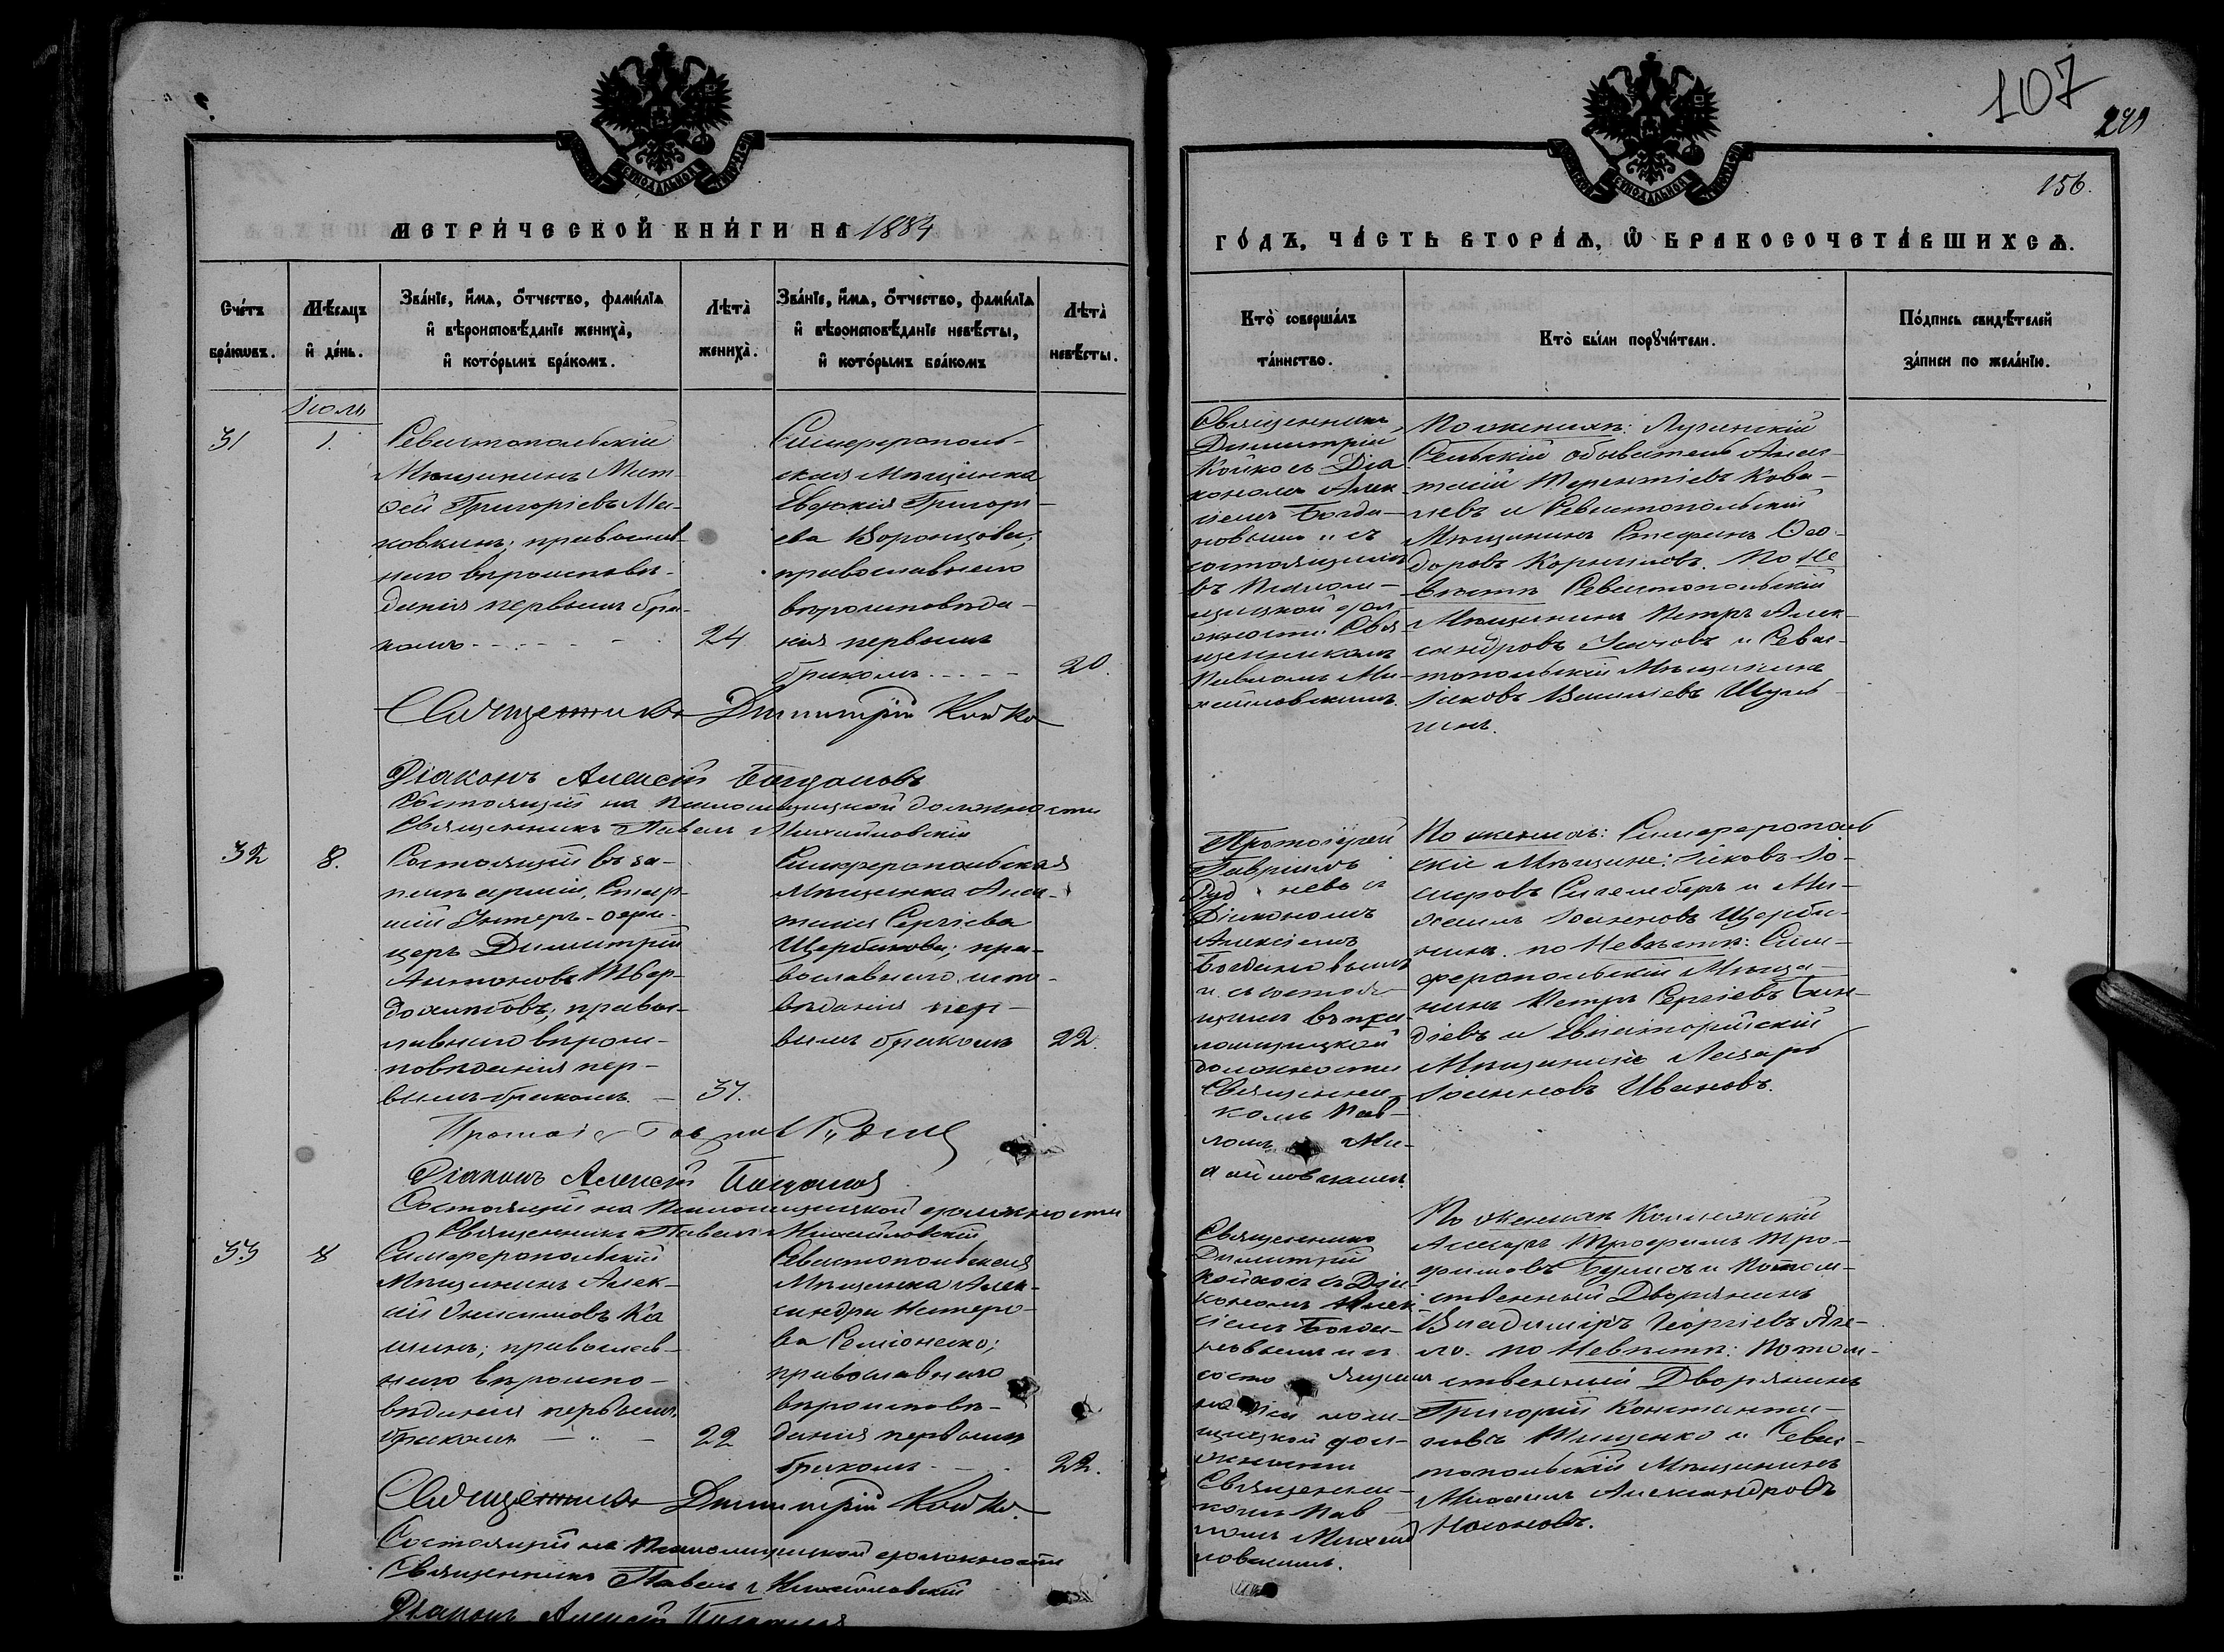 107
249
156.
МЕТРИЧЕСКОЙ КНИГИ НА 1884
ГОДЪ, ЧАСТЬ ВТОРАѦ, Ѿ БРАКОСОЧЕТАВШИХСѦ.
Счетъ браковъ.
Мѣсѧцъ и день.
Званїе, имѧ, отчество, фамилїѧ
и вѣроисповѣданїе жениха,
и которымъ бракомъ.
Лѣта
жениха.
Званїе, имѧ, отчество, фамилїѧ
и вѣроисповѣданїе невѣсты,
и которымъ бракомъ
Лѣта
невѣсты.
Кто совершалъ
таинство.
Кто были поручители.
Подпись свидѣтелей
записи по желанїю.
Іюль
31
1.
Севастопольскій
Мѣщанинъ Мат-
ѳей Григоріевъ Ма-
ковкинъ; православ-
наго вѣроисповѣ-
данія первымъ бра-
комъ
24
Симферополь-
ская Мѣщанка
Евдокія Григорі-
ева Воронцова;
православнаго
вѣроисповѣда-
нія первымъ
бракомъ
20.
Священникъ
Димитрій
Койко съ Діа
кономъ Алек
сіемъ Богда-
новымъ и съ
состоящимъ
въ Псалом-
щицкой дол-
жности Свя
щенникомъ
Павломъ Ми-
хайловскимъ.
По женихѣ:
Сельскій обыватель Алек-
сѣй Терентіевъ Кова-
левъ и Севастопольскій
Мѣщанинъ Стефанъ Ѳео-
доровъ Корниловъ. По Не
вѣстѣ Севастопольскій
Мѣщанинъ Петръ Алек-
сандровъ и Севас-
топольскій Мѣщанинъ
Іаковъ Василіевъ Шуль
гинъ.
Священникъ Димитрій Койко
Діаконъ Алексѣй Богдановъ
Состоящій на Псаломщицкой должности
Священникъ Павелъ Михайловскій
32
8.
Состоящій въ за-
пасѣ арміи, Стар-
шій Унтеръ-офи-
церъ Димитрій
Антоновъ Твер-
дохлѣбовъ; правос-
лавнаго вѣроис-
повѣданія пер-
вымъ бракомъ.
37.
Симферопольская
Мѣщанка Анас-
тасія Сергіева
Щербакова; пра-
вославнаго испо-
вѣданія пер-
вымъ бракомъ
22.
Протоіерей
Гавріилъ
Руд невъ съ
Діакономъ
Алексіемъ
Богдановымъ
и съ состоя-
щимъ въ пса-
ломщицкой
должности
Священни-
комъ Пав-
ломъ Ми-
хайловскимъ.
По женихѣ: Симферополь
скіе Мѣщане: Іаковъ
и Ми-
хаилъ Іоанновъ Щерби-
нинъ. по Невѣстѣ: Сим-
феропольскій Мѣща-
нинъ Петръ Сергіевъ
и Евпаторійскій
Мѣщанинъ Лазарь
Іоанновъ Ивановъ.
Діаконъ Алексѣй Богдановъ
Состоящій на Псаломщицкой должности
Священникъ Павелъ Михайловскій
33
8
Симферопольскій
Мѣщанинъ Алек-
сѣй Онисимовъ Ка
шинъ; православ-
наго вѣроиспо-
вѣданія первымъ
бракомъ
22
Севастопольская
Мѣщанка Алек-
сандра Нестеро-
ва Семіоненко;
православнаго
вѣроисповѣ-
данія первымъ
бракомъ
22.
Священникъ
Димитрій
Койко съ Діа-
кономъ Алек-
сіемъ Богда-
новымъ и съ
состо ящимъ
на Псалом-
щицкой дол-
жности
Священни-
комъ Пав-
ломъ Михай
ловскимъ.
По Женихѣ Коллежскій
Трофимъ Тро-
фимовъ и Потом-
ственный Дворянинъ
Владиміръ Георгіевъ
по Невѣстѣ: Потом-
ственный Дворянинъ
Григорій Константи-
новъ Тищенко и Севас-
топольскій Мѣщанинъ
Михаилъ Александровъ
Священникъ Димитрій Койко.
Состоящій на Псаломщицкой должности
Священникъ Павелъ Михайловскій
Діаконъ Алексѣй Богдановъ